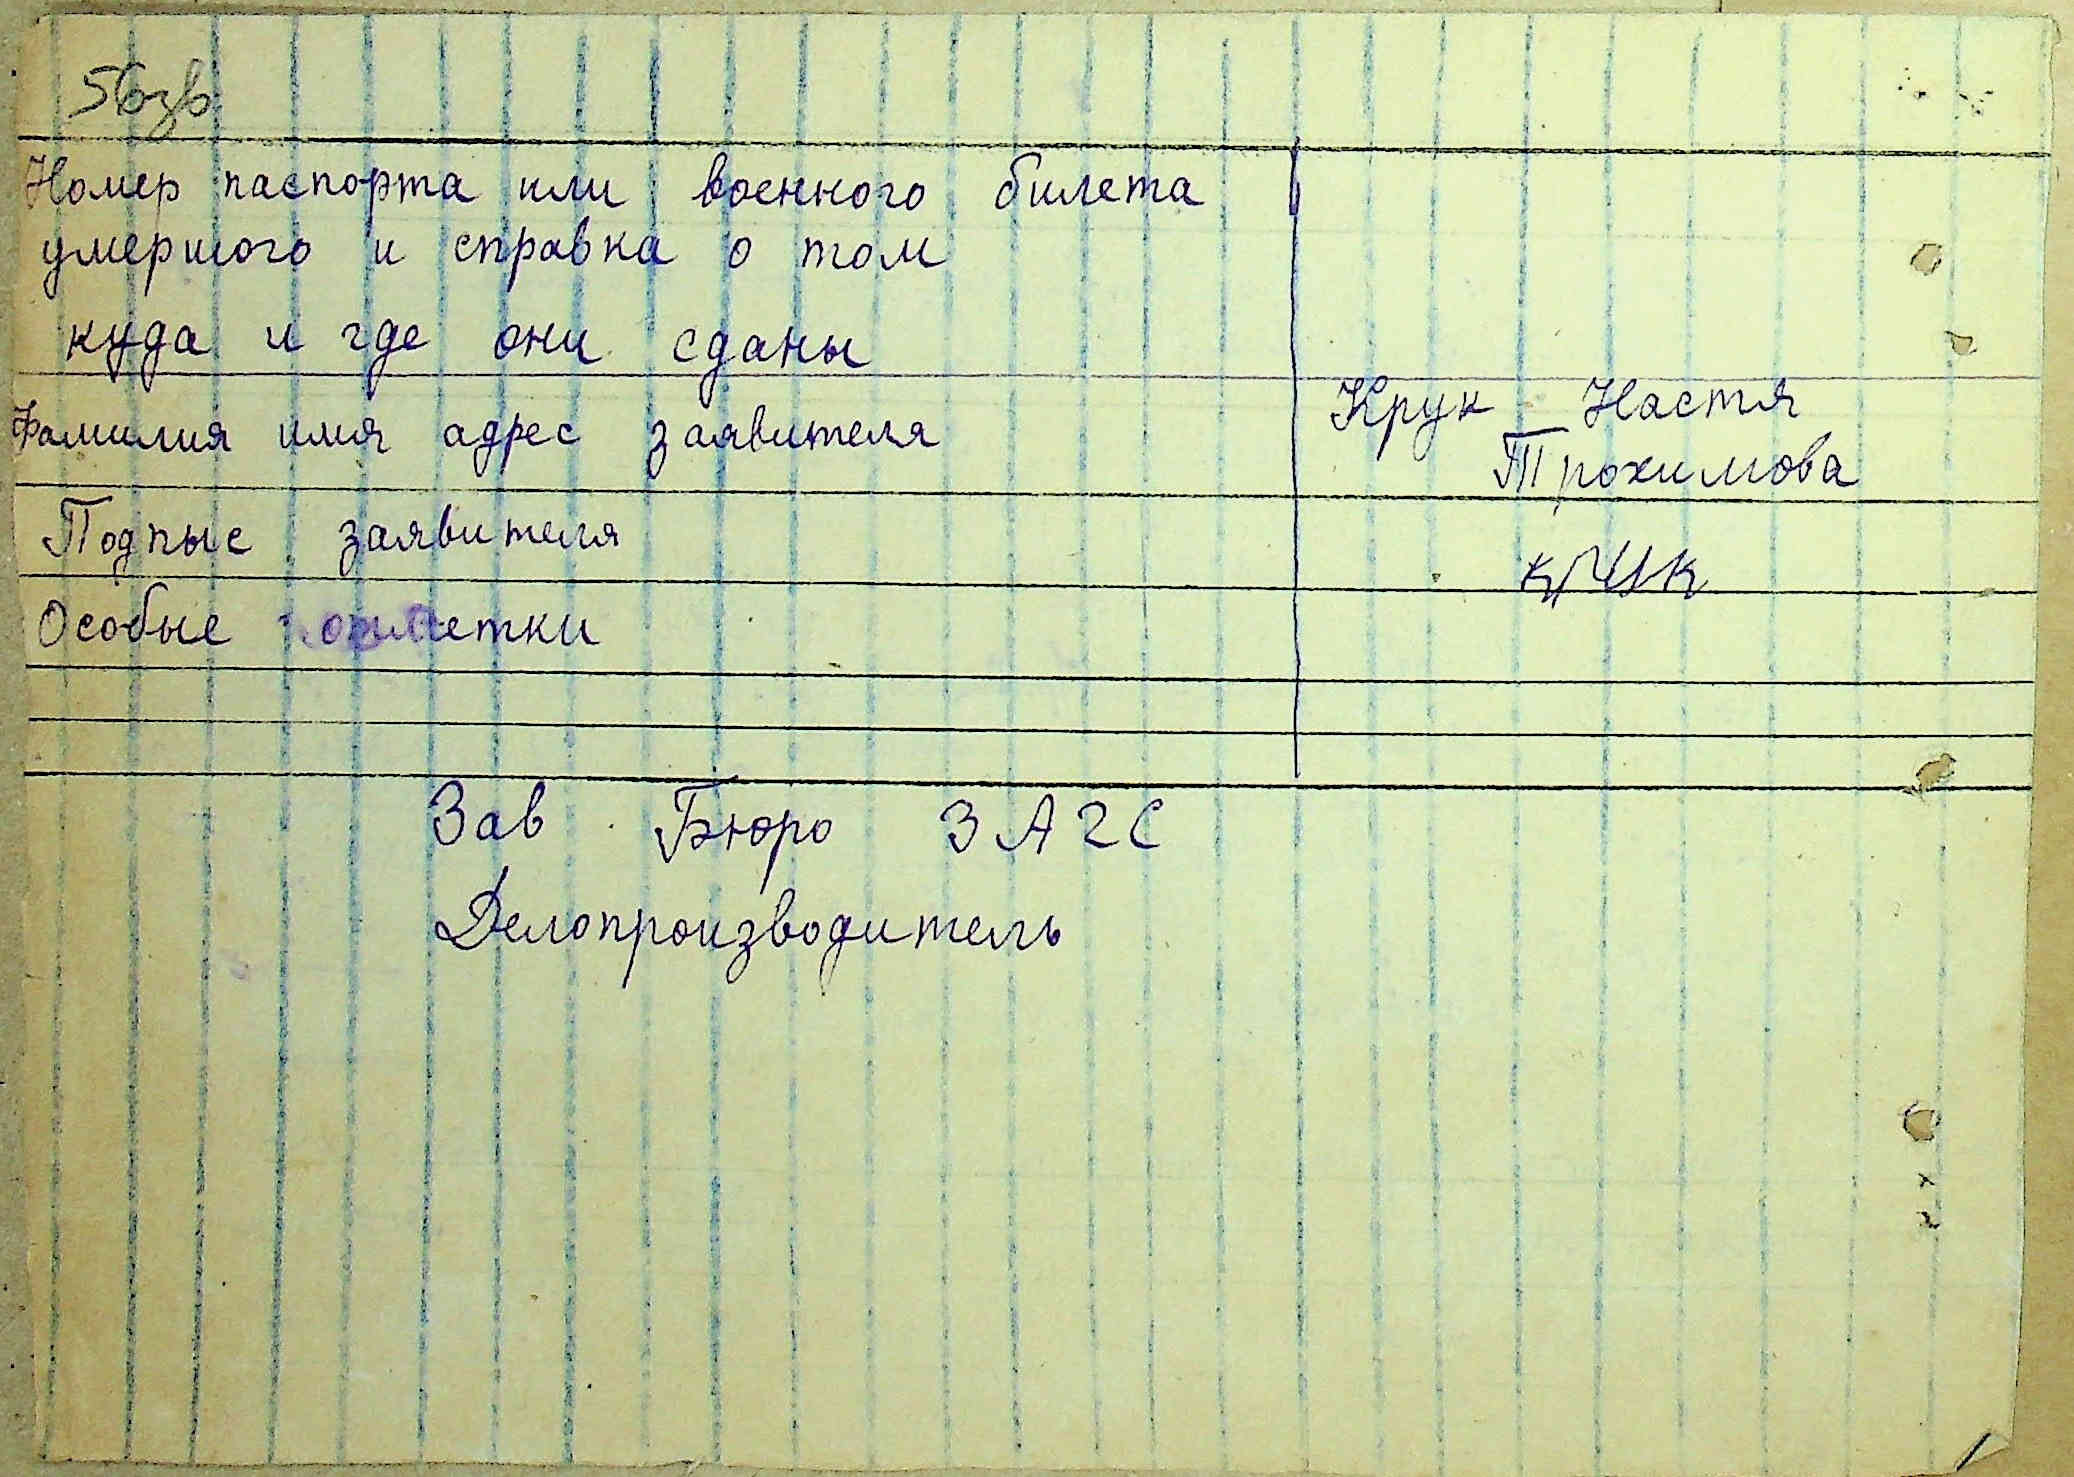 56зв
Номер паспорта или военного билета
умершого и справка о том
куда и где они сданы
Фамилия имя адрес заявителя
Крук Настя
Трохимова
Подпыс заявителя
крук
Особые пометки
Зав Бюро ЗАГС
Делопроизводитель